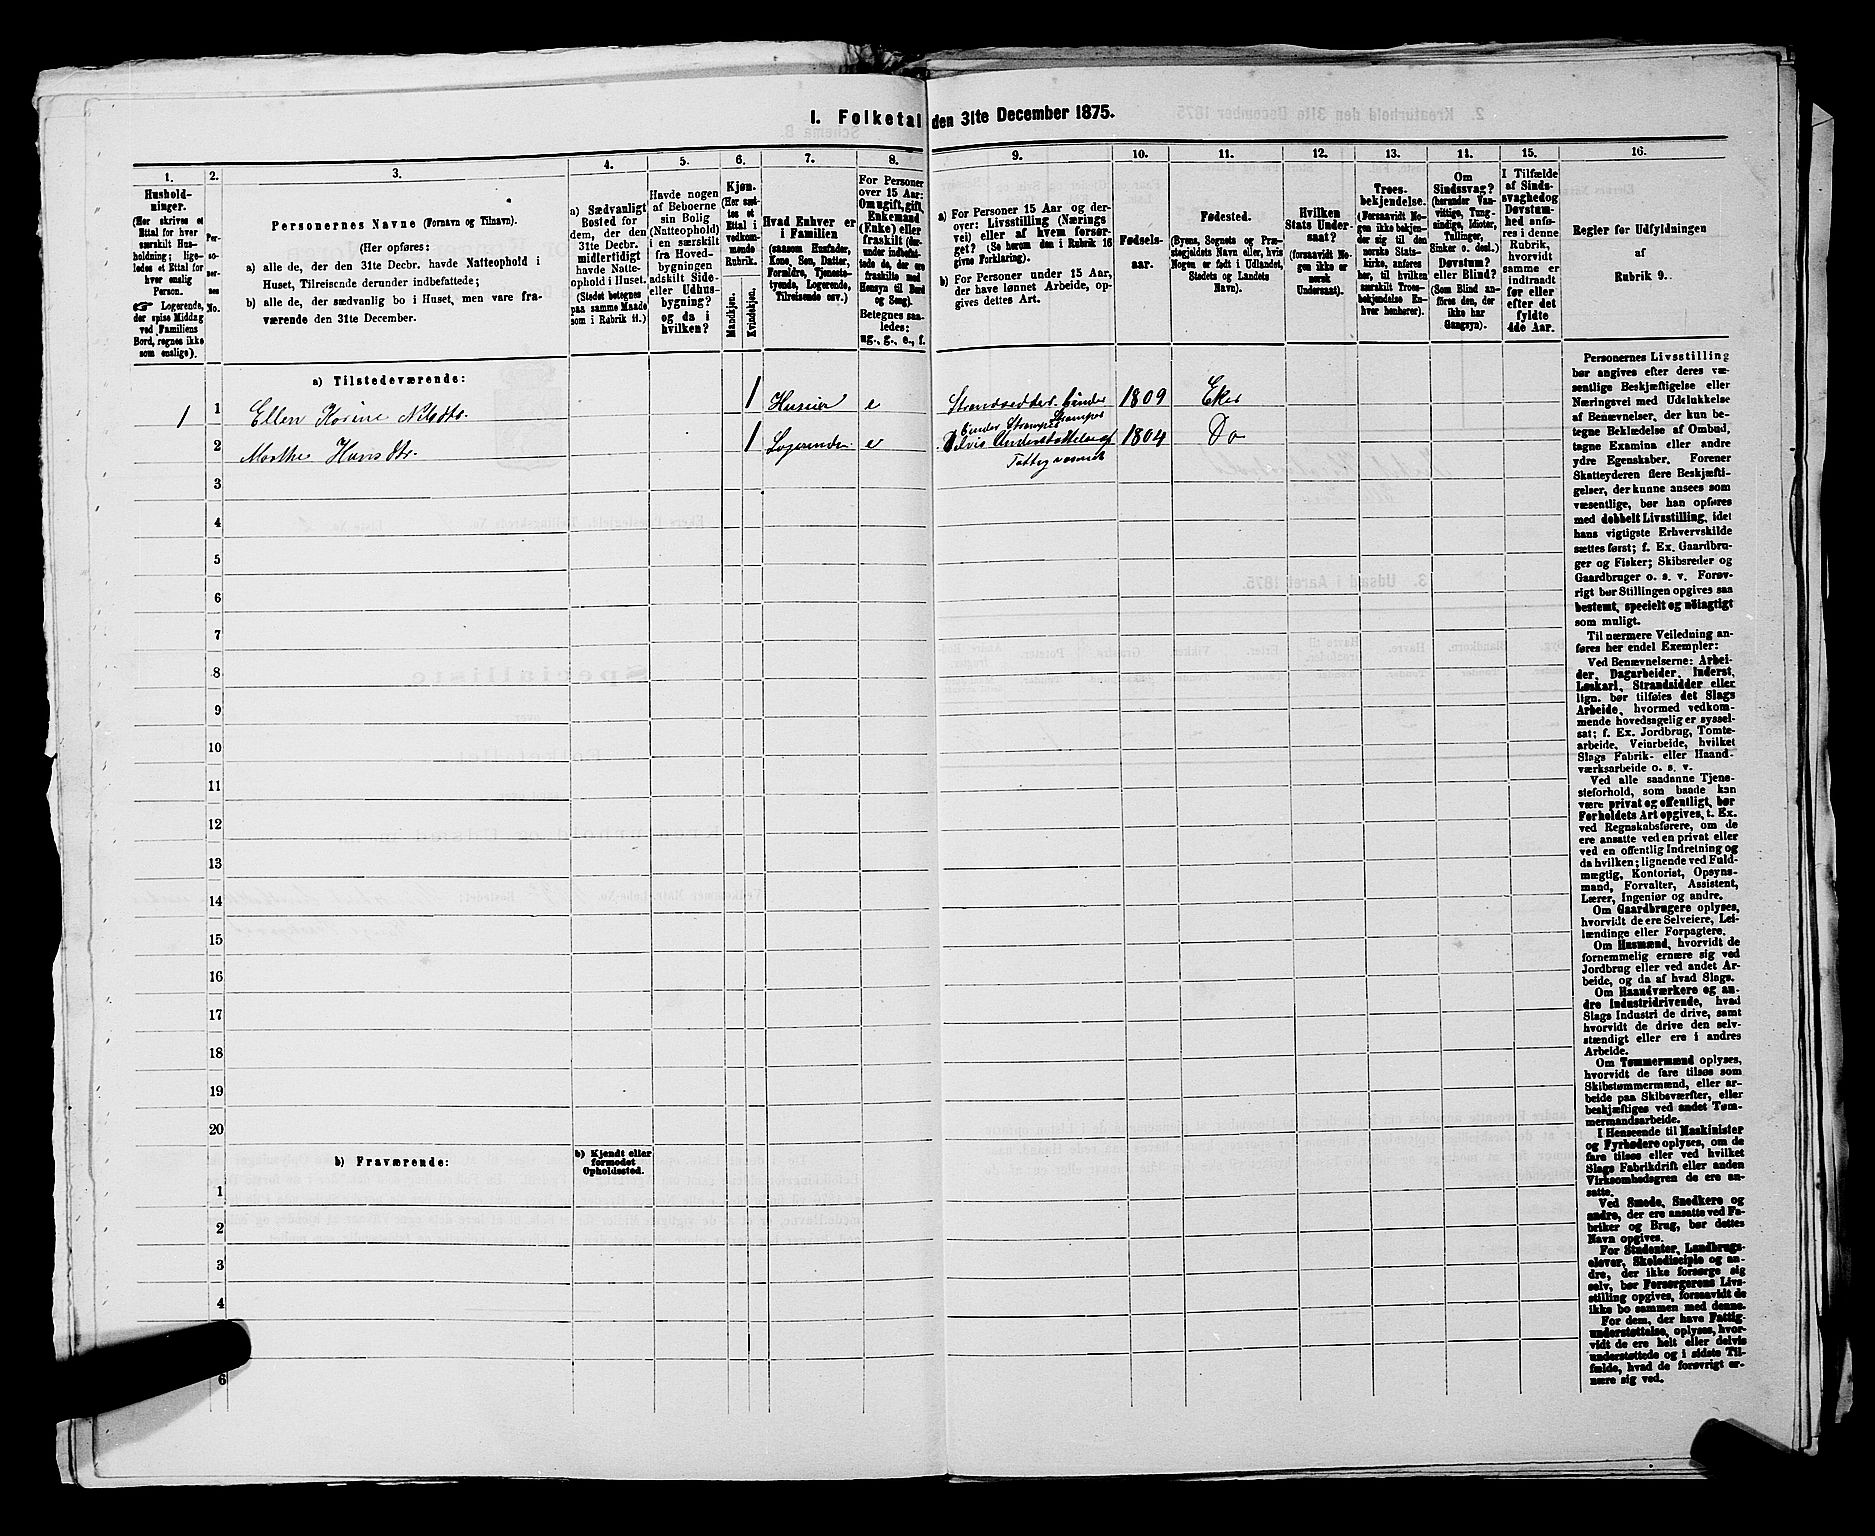 I. Folketal den 31te December 1875.
1. 2. 3. 4. 5. 6. 7. 8. 9. 10. 11. 12. 13. 14. 15. 16.
Hushold-
ninger.
(Her skrives et
Ettal for hver
særskilt Hus-
holdning; lige-
ledes et Ettal for
hver enslig
Person.
☞ Logerende,
der spise Middag
ved Familiens
Bord, regnes ikke
som enslige).
Per-
so-
ner-
nes
No.
Personernes Navne (Fornavn og Tilnavn).
(Her opføres:
a) alle de, der den 31te Decbr. havde Natteophold i
Huset, Tilreisende derunder indbefattede;
b) alle de, der sædvanlig bo i Huset, men vare fra-
værende den 31te December.
a) Sædvanligt
Bosted for
dem, der den
31te Decbr.
midlertidigt
havde Natte-
ophold i Huset.
(Stedet betegnes
paa samme Maade
som i Rubrik 11.)
Havde nogen
af Beboerne
sin Bolig
(Natteophold)
i en særskilt
fra Hoved-
bygningen
adskilt Side-
eller Udhus-
bygning?
og da i
hvilken?
Kjøn.
(Her sæt-
tes et
Ettal i
vedkom-
mende
Rubrik.
Mandkjøn.
Kvindekjøn.
Hvad Enhver er
i Familien
(saasom Husfader,
Kone, Søn, Datter,
Forældre, Tjeneste-
tyende, Logerende,
Tilreisende osv.)
For Personer
over 15 Aar:
Om ugift, gift,
Enkemand
(Enke) eller
fraskilt (der-
under indbefat-
tede de, der ere
fraskilte med
Hensyn til Bord
og Seng).
Betegnes saa-
ledes:
ug., g., e., f.
a) For Personer 15 Aar og der-
over: Livsstilling (Nærings-
vei) eller af hvem forsør-
get? (Se herom den i Rubrik 16
givne Forklaring).
b) For Personer under 15 Aar,
der have lønnet Arbeide, op-
gives dettes Art.
Fødsels-
aar.
Fødested.
(Byens, Sognets og Præ-
stegjeldets Navn eller, hvis
Nogen er født i Udlandet,
Stedets og Landets
Navn).
Hvilken
Stats Under-
saat?
(forsaavidt No-
gen ikke er
norsk
Undersaat).
Troes-
bekjendelse.
(Forsaavidt No-
gen ikke bekjen-
der sig til den
norske Stats-
kirke, anføres
her, til hvilken
særskilt Troes-
bekjendelse En-
hver henhører).
Om
Sindssvag?
(herunder Van-
vittige, Tung-
sindige, Idioter,
Tullinger,
Sinker o. desl.)
Døvstum?
eller Blind?
(Som Blind an-
føres den, der
ikke har
Gangsyn).
I Tilfælde
af Sinds-
svaghed og
Døvstum-
hed anfø-
res i denne
Rubrik,
hvorvidt
samme er
indtraadt
før eller
efter det
fyldte
4de Aar.
Regler for Udfyldningen
af
Rubrik 9.
a) Tilstedeværende:
1 1 Ellen Karine Nilsdtr. 1 Huseier e Strandsidder. binder Strømper 1809 Eker
2 Marthe Hansdtr. 1 Logerende e binder Strømper
Delvis Understøttelse af 1804 Do
Fattigvæsenet
3
4
5
6
7
8
9
10
11
12
13
14
15
16
17
18
19
20
b) Fraværende:
b) Kjendt eller
formodet
Opholdssted.
1
2
3
4
6
Personernes Livsstilling
bør angives efter deres væ-
sentlige Beskjæftigelse eller
Næringsvei med Udelukkelse
af Benævnelser, der kun be-
tegne Beklædelse af Ombud,
tagne Examina eller andre
ydre Egenskaber. Forener
Skatteyderen flere Beskjæfti-
gelser, der kunne ansees som
væsentlige, bør han opføres
med dobbelt Livsstilling, idet
hans vigtigste Erhvervskilde
sættes først; f. Ex. Gaardbru-
ger og Fisker; Skibsreder og
Gaardbruger o. s. v. Forøv-
rigt bør Stillingen opgives saa
bestemt, specielt og nöiagtigt
som muligt.
Til nærmere Veiledning an-
føres her endel Exempler:
Ved Benævnelserne: Arbei-
der, Dagarbeider, Inderst,
Løskarl, Strandsidder eller
lign. bør tilføies det Slags
Arbeide, hvormed vedkom-
mende hovedsagelig er syssel-
sat; f. Ex. Jordbrug, Tomte-
arbeide, Veiarbeide, hvilket
Slags Fabrik- eller Haand-
værksarbeide o. s. v.
Ved alle saadanne Tjene-
steforhold, som baade kan
være privat og offentligt, bør
Forholdets Art opgives, t. Ex.
ved Regnskabsførere, om de
ere ansatte ved en privat eller
ved en offentlig Indretning og
da hvilken; lignende ved Fuld-
mægtig, Kontorist, Opsyns-
mand, Forvalter, Assistent,
Lærer, Ingeniør og andre.
Om Gaardbrugere oplyses,
hvorvidt de ere Selveiere, Lei-
lændinge eller Forpagtere.
Om Husmænd, hvorvidt de
fornemmelig ernære sig ved
Jordbrug eller ved andet Ar-
beide, og da af hvad Slags.
Om Haandværkere og an-
dre Industridrivende, hvad
Slags Industri de drive, samt
hvorvidt de drive den selv-
stændigt eller ere i andres
Arbeide.
Om Tømmermænd oplyses,
hvorvidt de fare tilsøs som
Skibstømmermænd, eller ar-
beide paa Skibsværfter, eller
beskjæftiges ved andet Tøm-
mermandsarbeide.
I Henseende til Maskinister
og Fyrbødere oplyses, om de
fare tilsøs eller ved hvilket
Slags Fabrikdrift eller anden
Virksomhedsgren de ere an-
satte.
Ved Smede, Snedkere og
andre, der ere ansatte ved Fa-
briker og Brug, bør dettes
Navn opgives.
For Studenter, Landbrugs-
elever, Skoledisciple og an-
dre, der ikke forsørge sig
selv, bør Forsørgerens Livs-
stilling opgives, forsaavidt de
ikke bo sammen med denne.
For dem, der have Fattig-
understøttelse, oplyses, hvor-
vidt de ere helt eller delvis
understøttede og i sidste Til-
fælde, hvad de forøvrigt er-
nære sig ved.